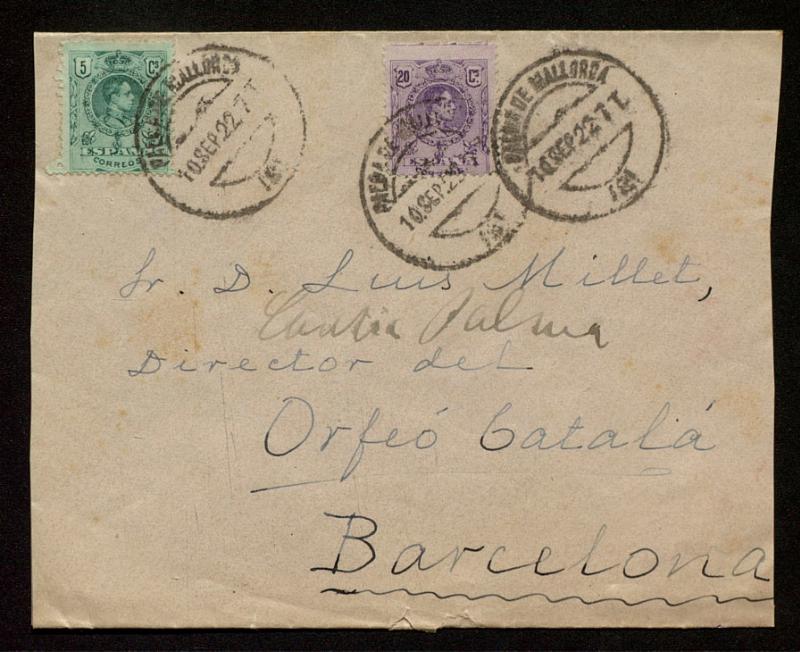 5 Cs
ESPAÑA
CORREOS
PALMA DE MALLORCA
10.SEP.22.7T.
20 Cs
PALMA DE MALLORCA
10.SEP.22
PALMA DE MALLORCA
10.SEP.22.7T.
Sr. D. Luis Millet,
Palma
Director del
Orfeó Catalá
Barcelona